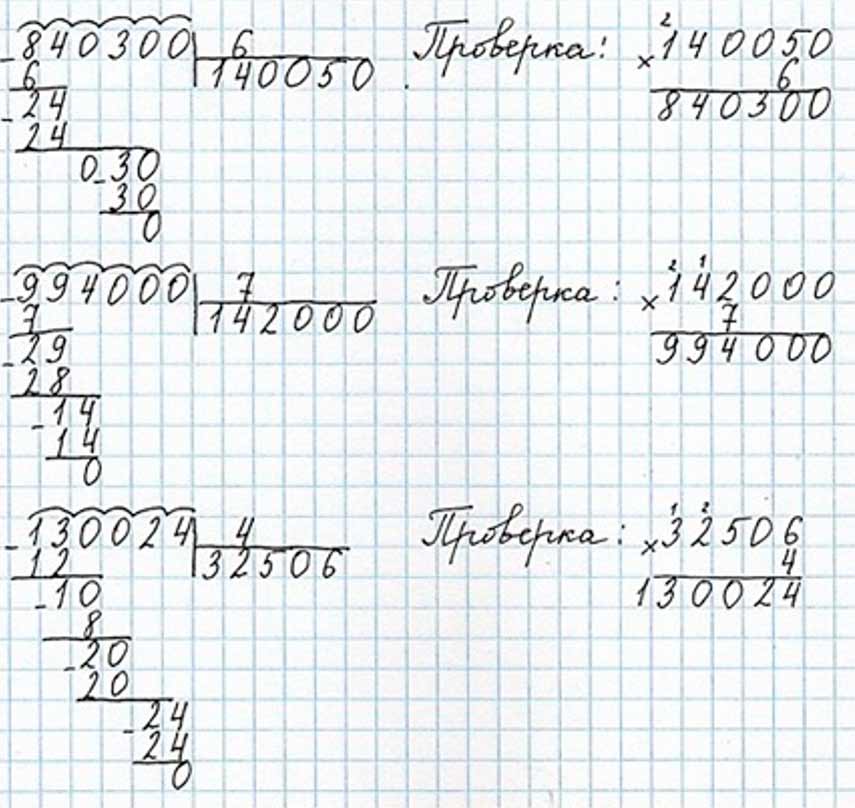 840300 6 Проверка: 2
6 140050 × 140050
24 6
24 840300
0 30
30
0
994000 7 Проверка: 2 1
7 142000 × 142000
29 7
28 994000
14
14
0
130024 4 Проверка: 1 2
12 32506 × 32506
10 4
8 130024
20
20
24
24
0